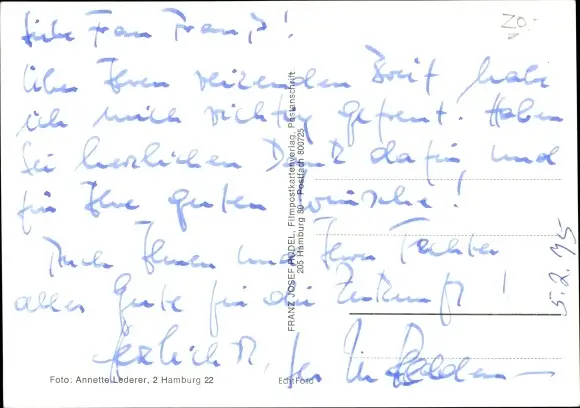 Liebe Frau Franz!
20,-
Über Ihren reizenden Brief habe
ich mich richtig gefreut. Haben
Sie herzlichen Dank dafür, und
für Ihre guten Wünsche!
Auch Ihnen und Ihrer Tochter
alles Gute für die Zukunft!
Herzlichst, Ihr
5.2.75
FRANZ JOSEF RÜDEL, Filmpostkartenverlag, Postanschrift
205 Hamburg 80 - Postfach 800725
Foto: Annette Lederer, 2 Hamburg 22
Echt Foto